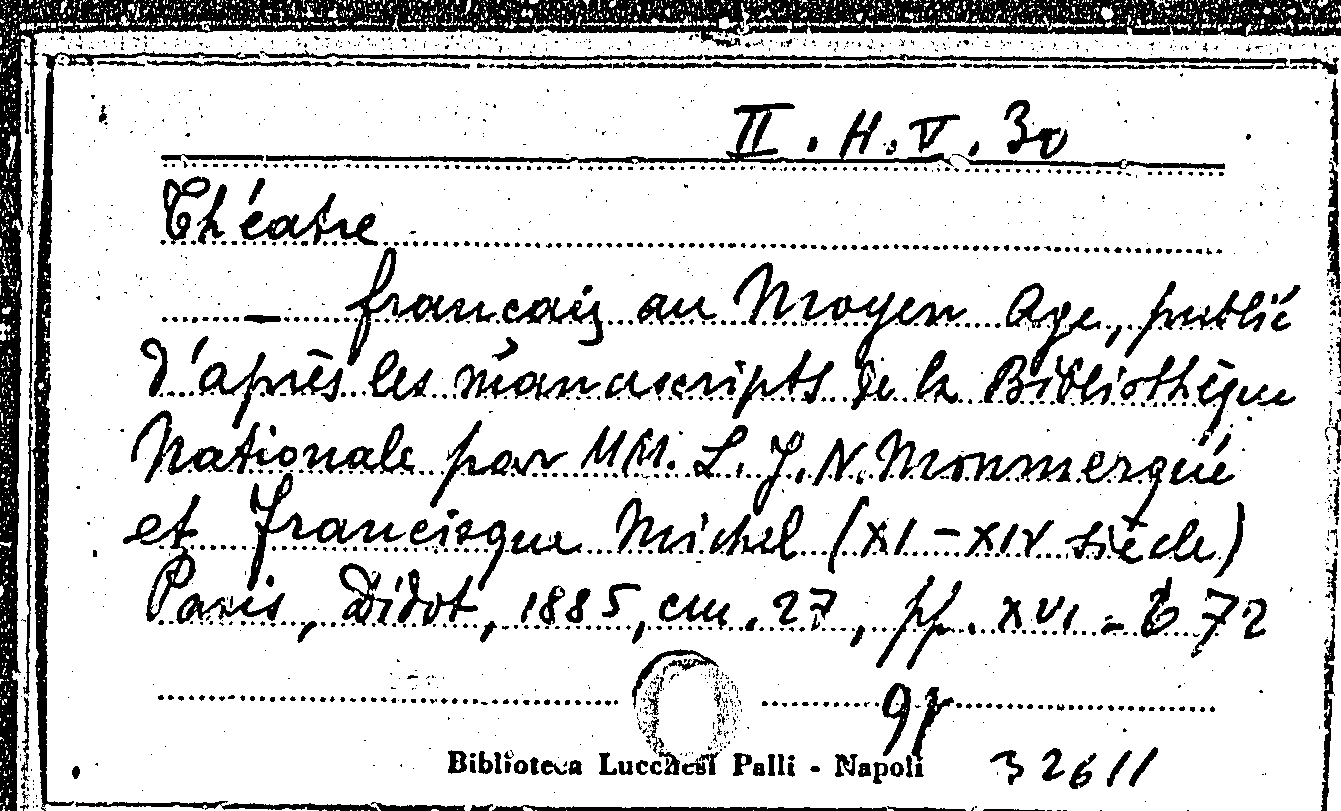 II. H. V. 30
Théatre
— français au Moyen Age, publié
d'après les manuscripts de la Bibliothèque
Nationale par MM. L. J. N. Monmerqué
et Francisque Michel (XI-XIV siècle)
Paris, Didot, 1885, cm. 27, pp. XVI-672
Biblioteca Lucchesi Palli - Napoli 32611